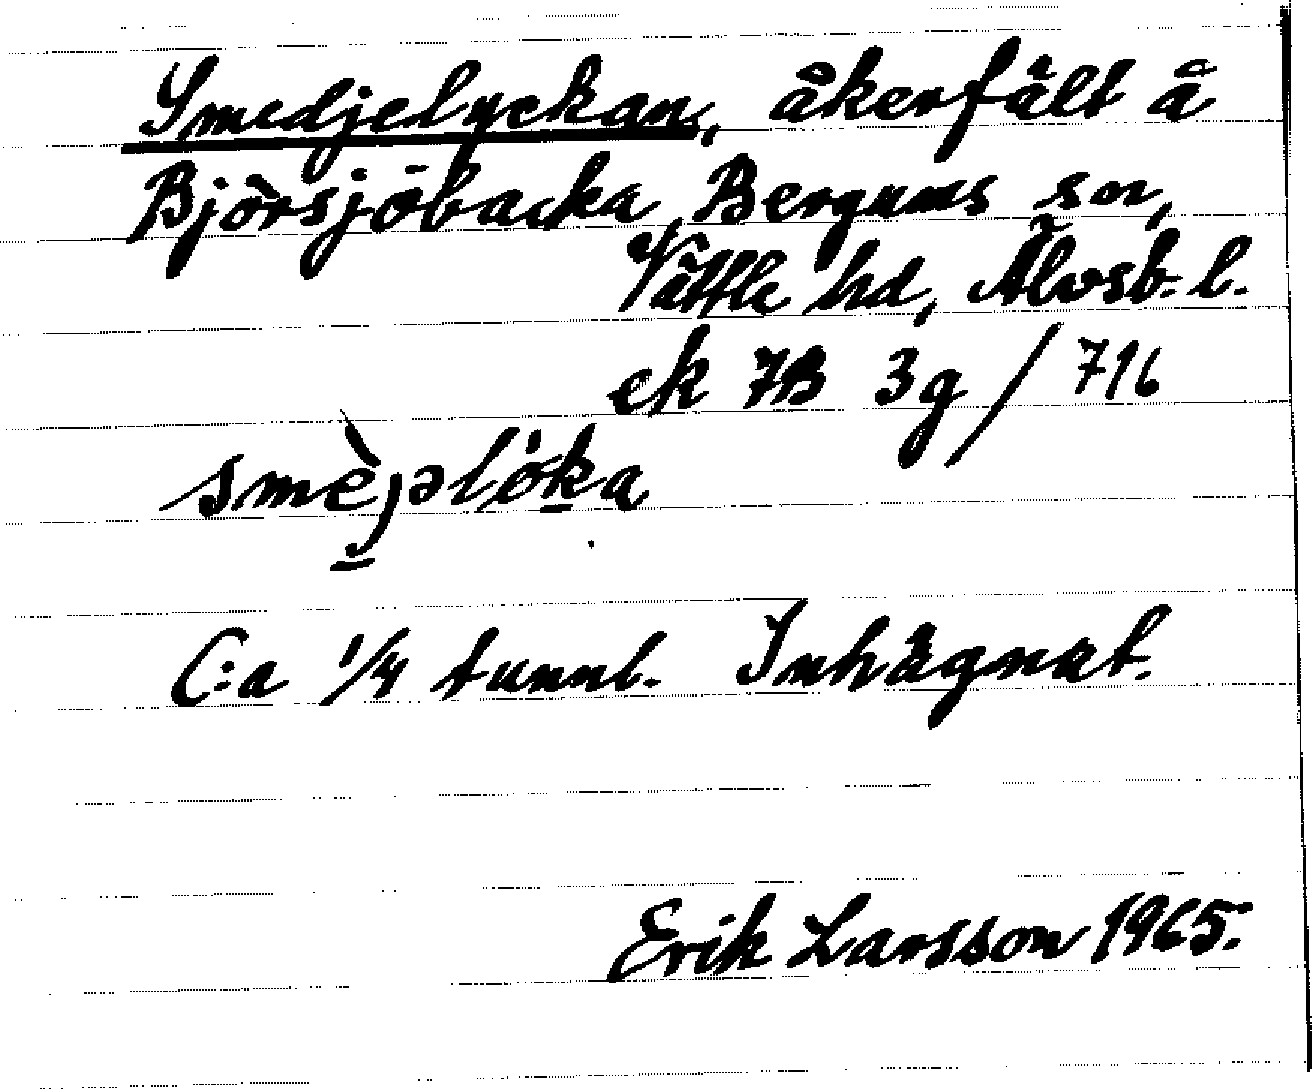 Smedjelyckan, åkerfält å
Björsjöbacka, Bergums sn,
Vättle hd, Älvsb. l.
ek 7B 3g / 716
smèjəlöka
C:a 1/4 tunnl. Inhägnat.
Erik Larsson 1965.